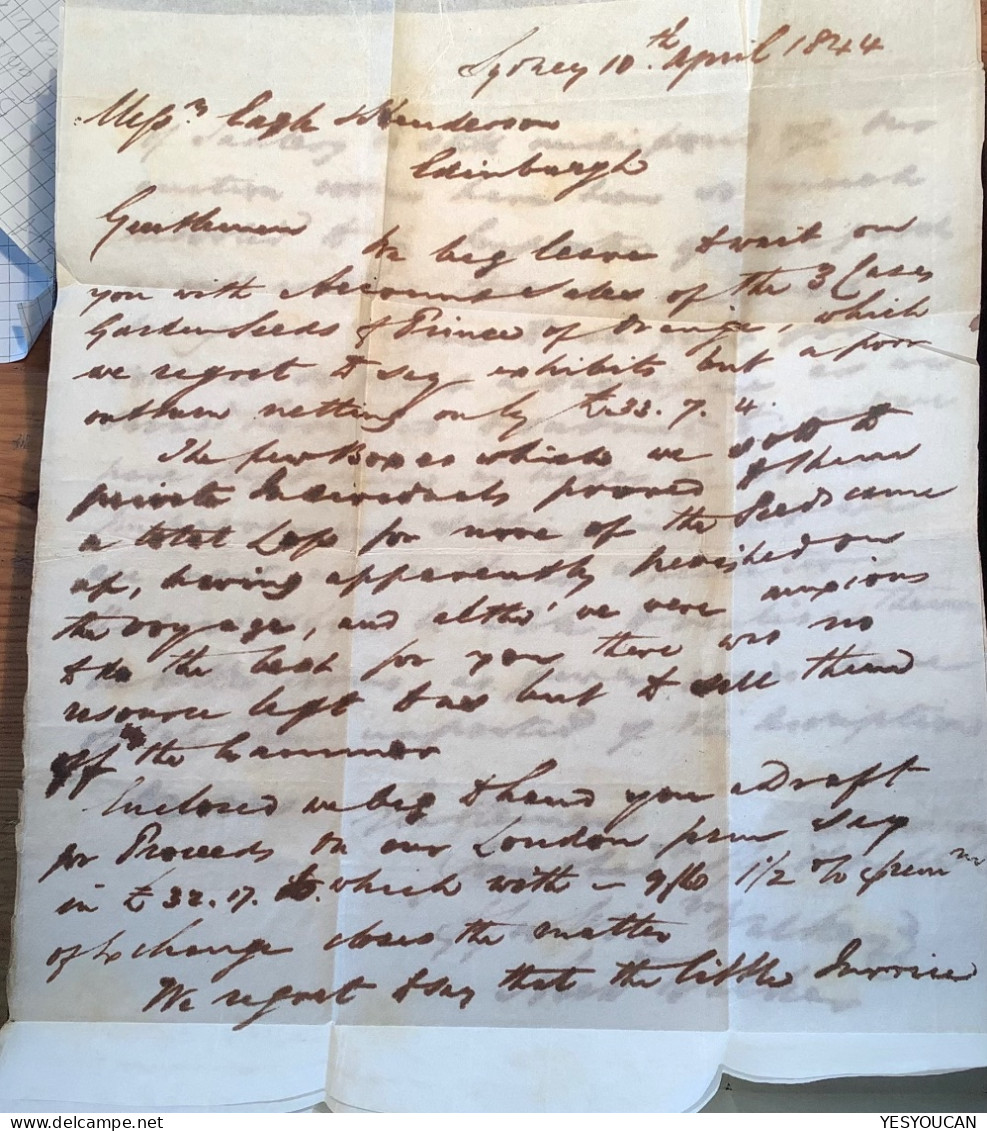 Sydney 10th April 1844
Messrs Eagle & Henderson
Edinburgh
Gentlemen
We beg leave to wait on
you with Account Sales of the 3 Cases
Garden Seeds p Prince of Orange, which
we regret to say exhibits but a poor
outturn netting only £33. 7. 4.
The few Boxes which we sold to
private Individuals proved to them
a total Loss for none of the Seeds came
up, having apparently perished on
the voyage, and altho' we were anxious
to do the best for you there was no
resource left to us but to sell them
off by the hammer
Enclosed we beg to hand you a Draft
for Proceeds on our London firm say
in £32. 17. which with 1½ % prem
of Exchange closes the matter
We regret to say that the little Invoice
YESYOUCAN